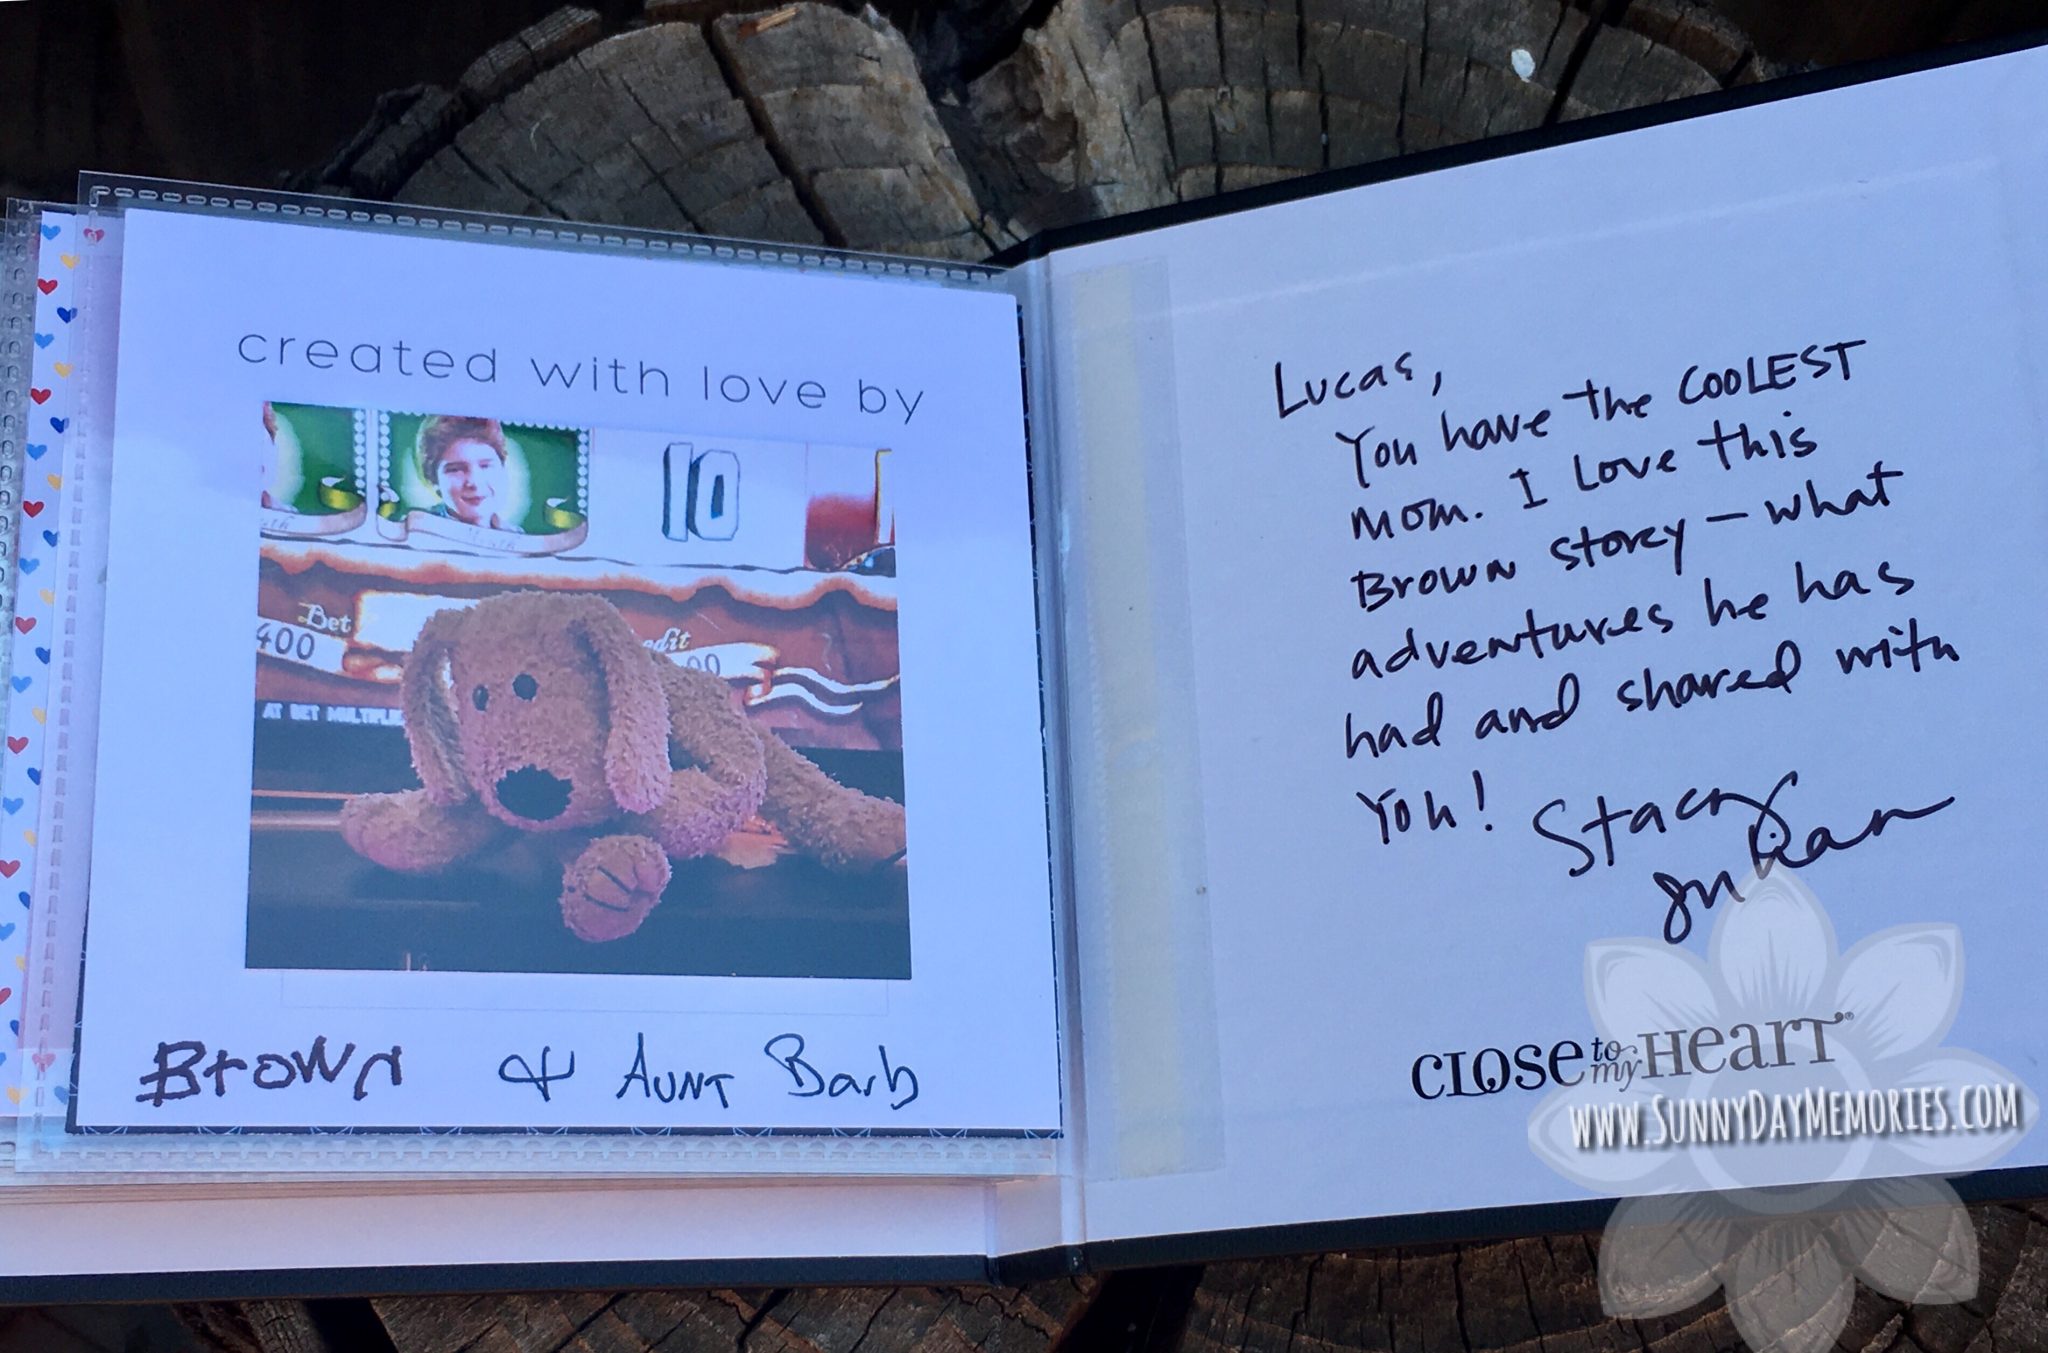 created with love by
10
Bet
400
00
AT BET MULTIPLI
Brown & Aunt Barb
Lucas,
You have the COOLEST
mom. I Love this
Brown storey – what
adventures he has
had and shared with
You!
Stacy
Julian
CLOSE to my HEART®
www.SunnyDayMemories.com